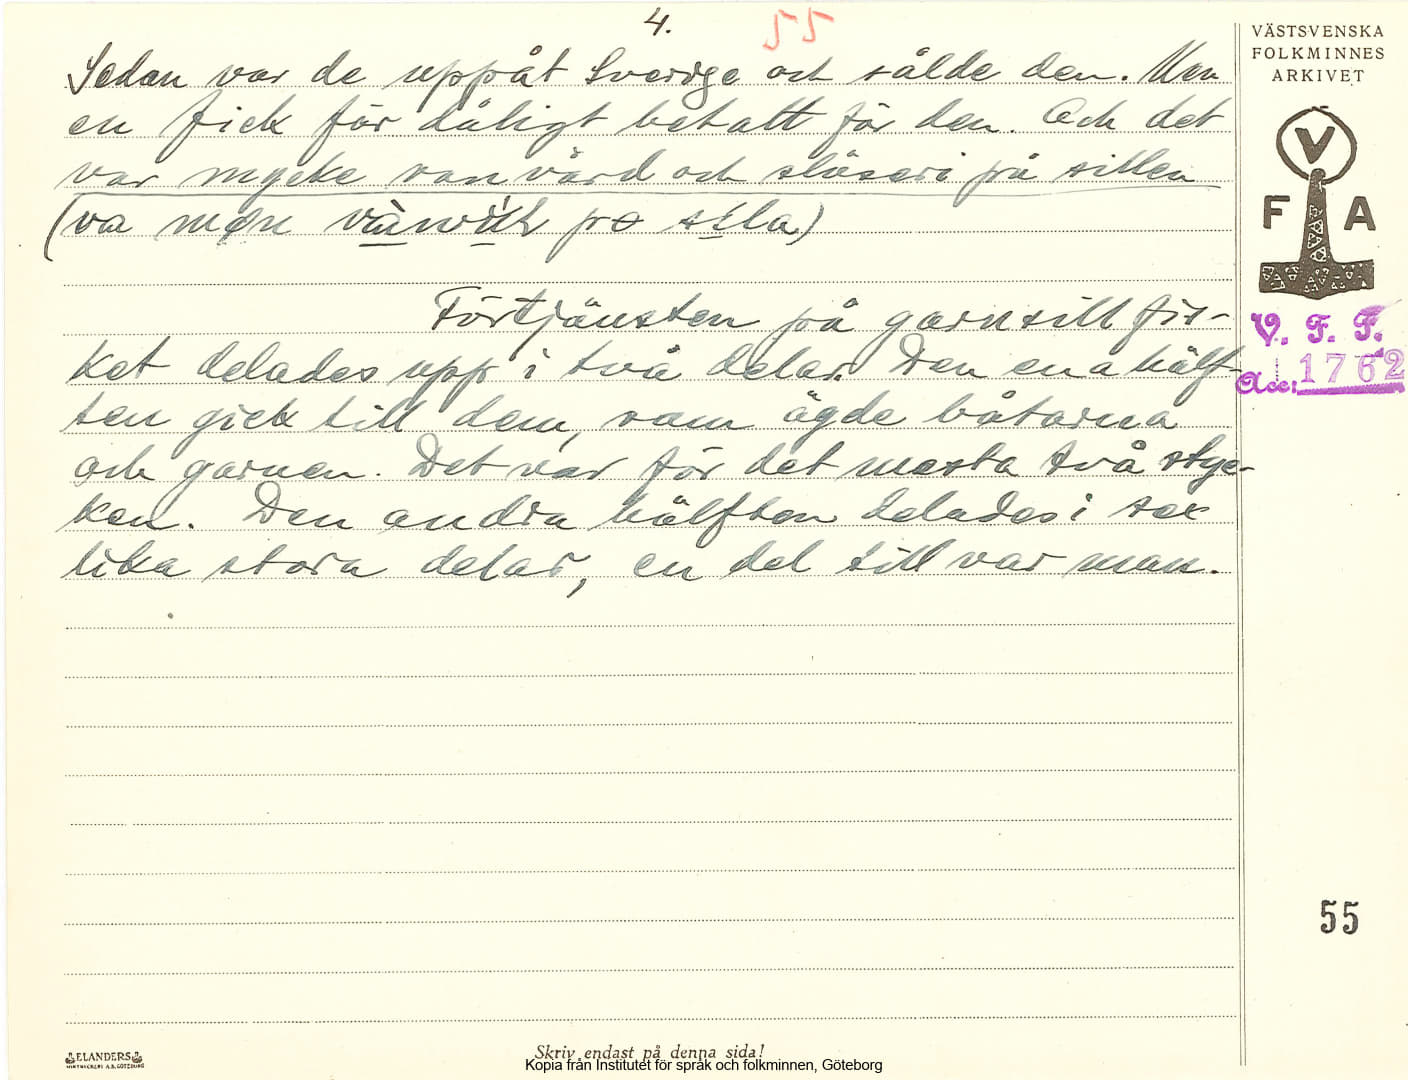 4. 55
Sedan var de uppåt Sverige och sålde den. Men
en fick för dåligt betalt för den. Och det
var mycke vanvård och slöseri på sillen
(va
Förtjänsten på garnsillfis-
ket delades upp i två delar. Den ena hälf-
ten gick till dem, som ägde båtarna
och garnen. Det var för det mesta två styc-
ken. Den andra hälften delades i sex
lika stora delar, en del till var man.
VÄSTSVENSKA
FOLKMINNES
ARKIVET
V
F A
V. F. F.
Acc: 1762
55
ELANDERS
Skriv endast på denna sida!
Kopia från Institutet för språk och folkminnen, Göteborg